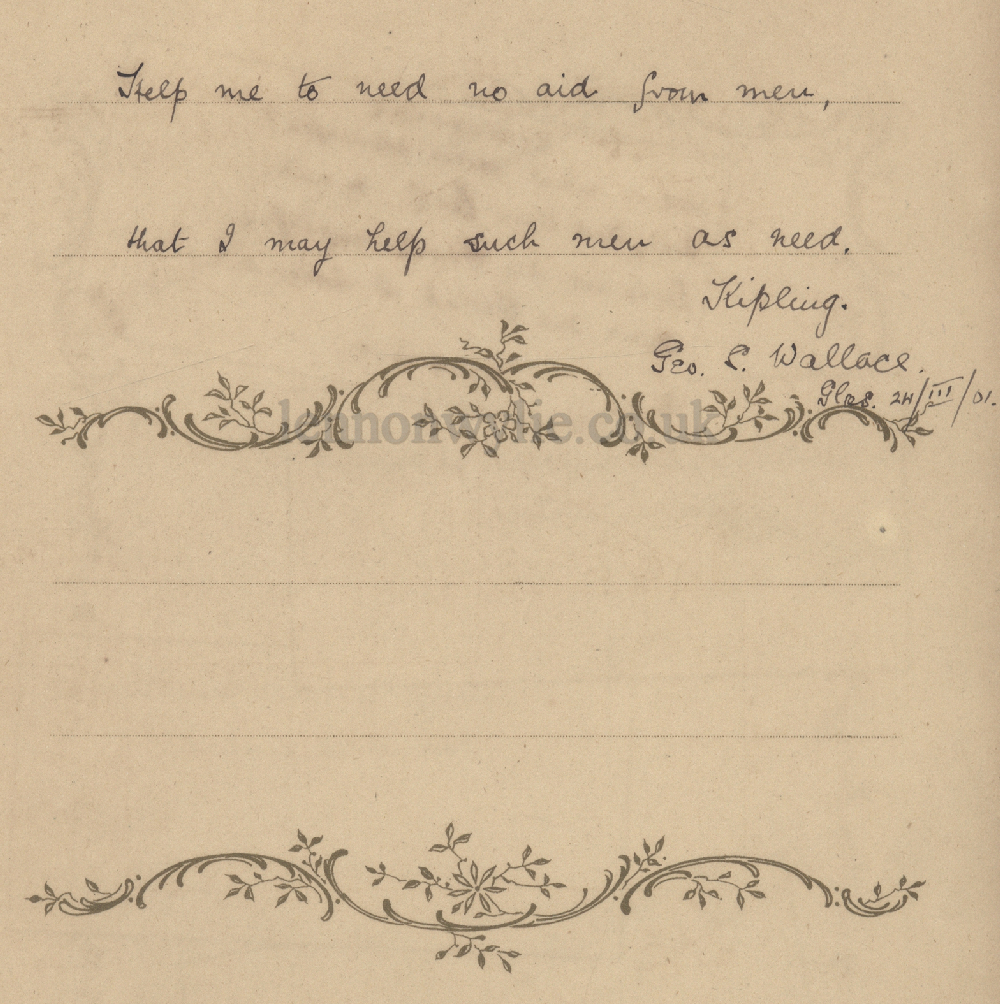 Help me to need no aid from men,
that I may help such men as need.
Kipling.
Geo. S. Wallace.
Glas. 24/III/01.
lennonwylie.co.uk